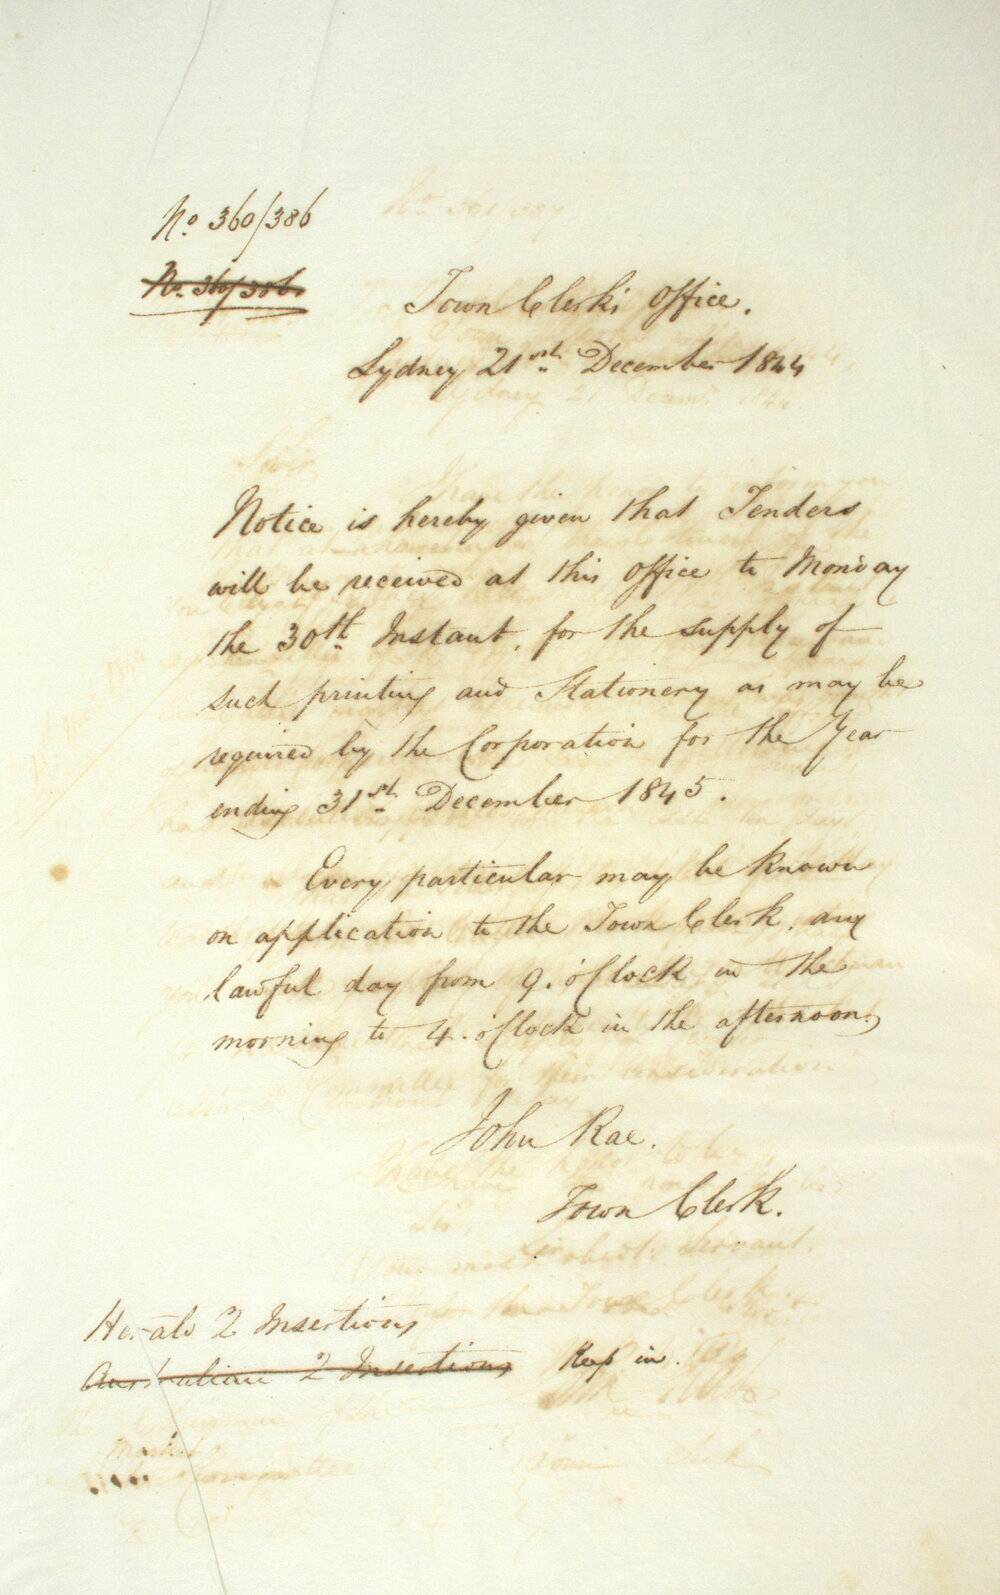 No. 360/386
No. 360/386
Town Clerk's Office.
Sydney 21st December 1844
Notice is hereby given that Tenders
will be received at this Office to Monday
the 30th Instant, for the supply of
such printing and Stationery as may be
required by the Corporation for the Year
ending 31st December 1845.
Every particular may be known
on application to the Town Clerk, any
lawful day from 9. o'Clock in the
morning to 4. o'Clock in the afternoon.
John Rae.
Town Clerk.
Herald 2 Insertions
Australian 2 Insertions Keep in.